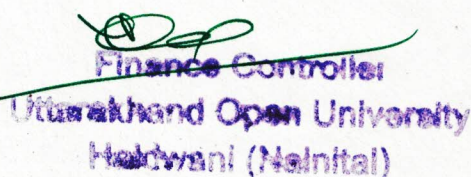 Finance Controller
Uttarakhand Open University
Haldwani (Nainital)